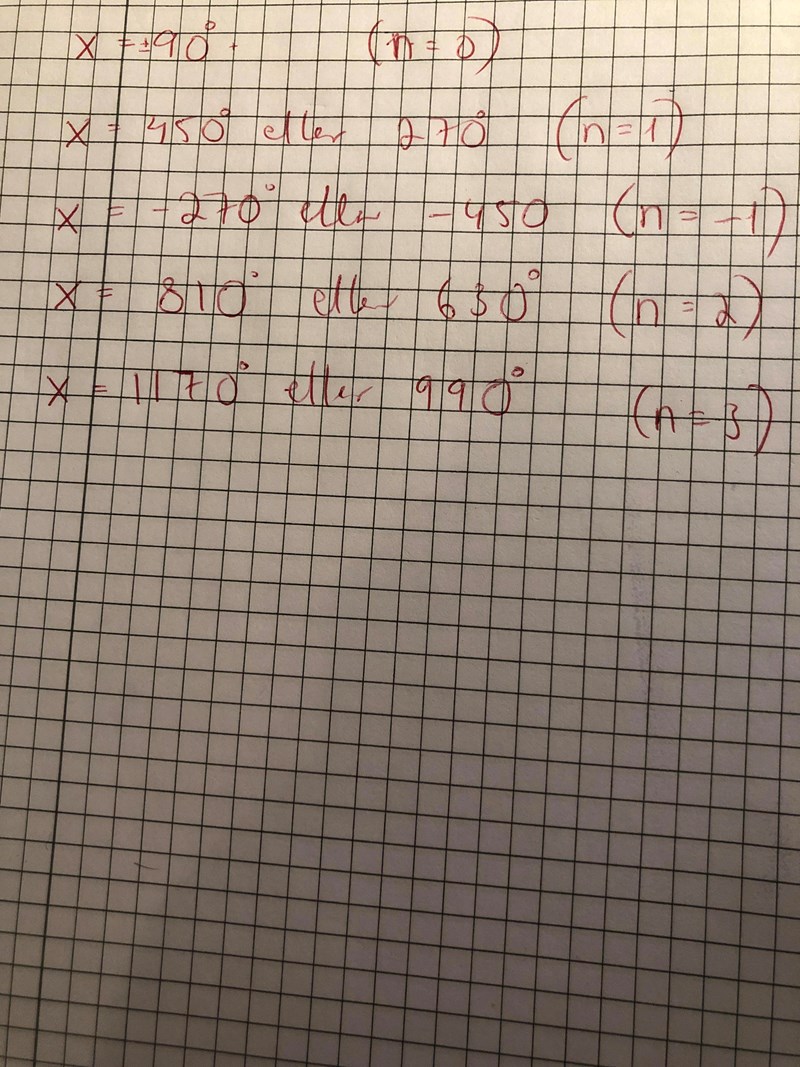 x = ±90°. (n = 0)
x = 450° eller 270° (n = 1)
x = -270° eller -450 (n = -1)
x = 810° eller 630° (n = 2)
x = 1170° eller 990° (n = 3)